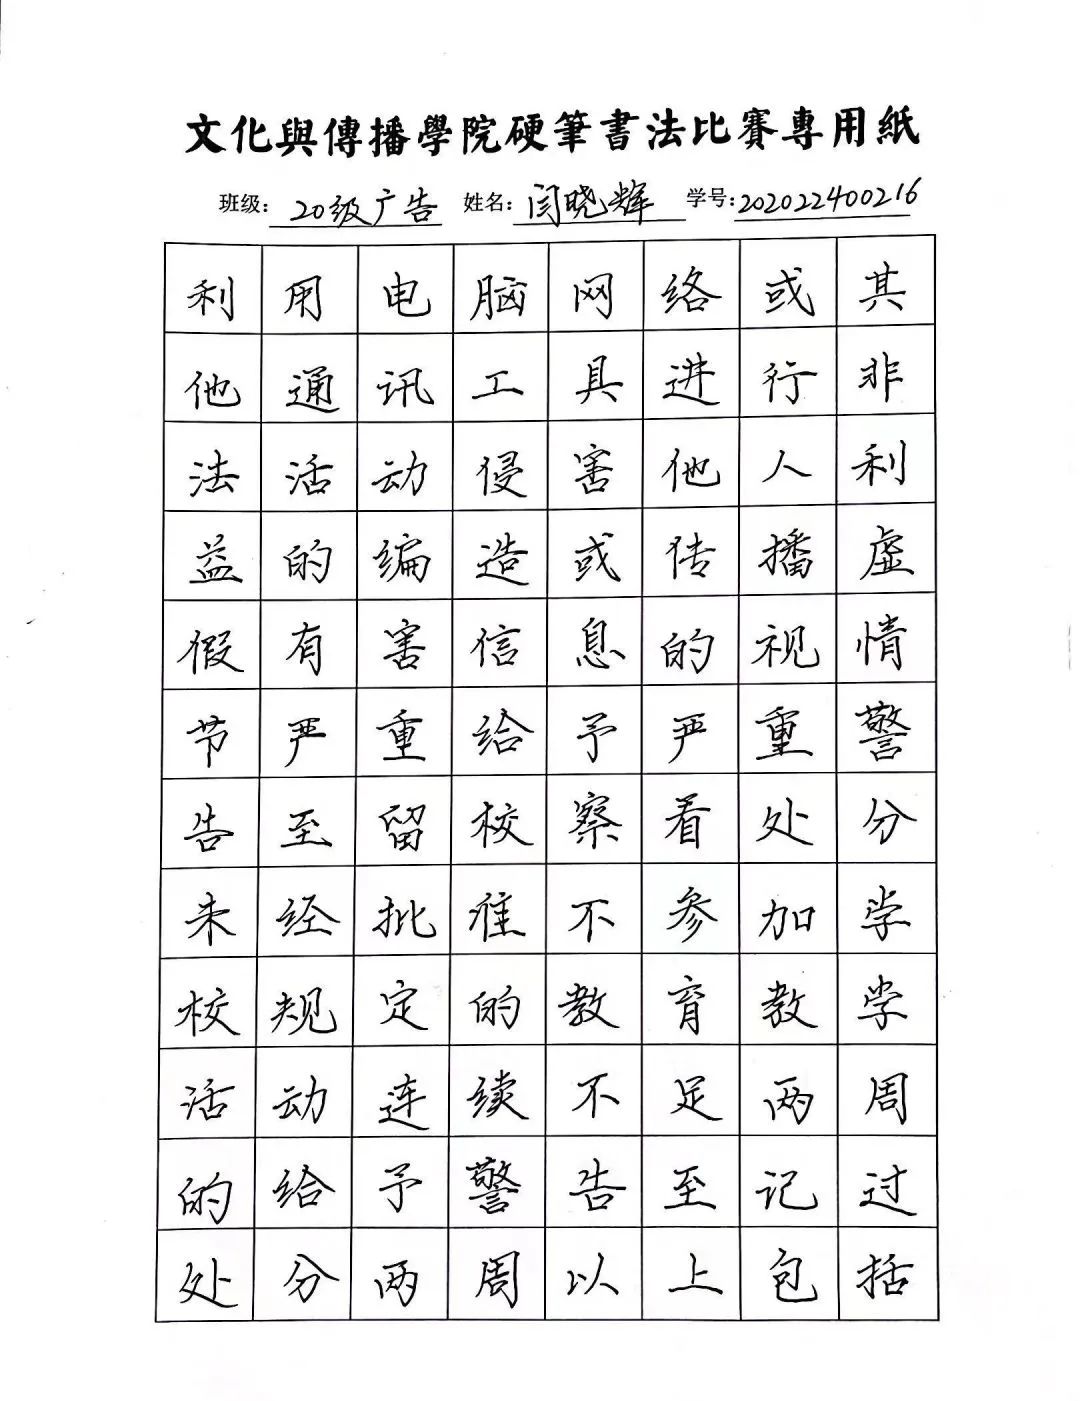 文化與傳播學院硬筆書法比賽專用紙
班级：20级广告 姓名：闫晓辉 学号：202022400216
利用电脑网络或其
他通讯工具进行非
法活动侵害他人利
益的编造或传播虚
假有害信息的视情
节严重给予严重警
告至留校察看处分
未经批准不参加学
校规定的教育教学
活动连续不足两周
的给予警告至记过
处分两周以上包括